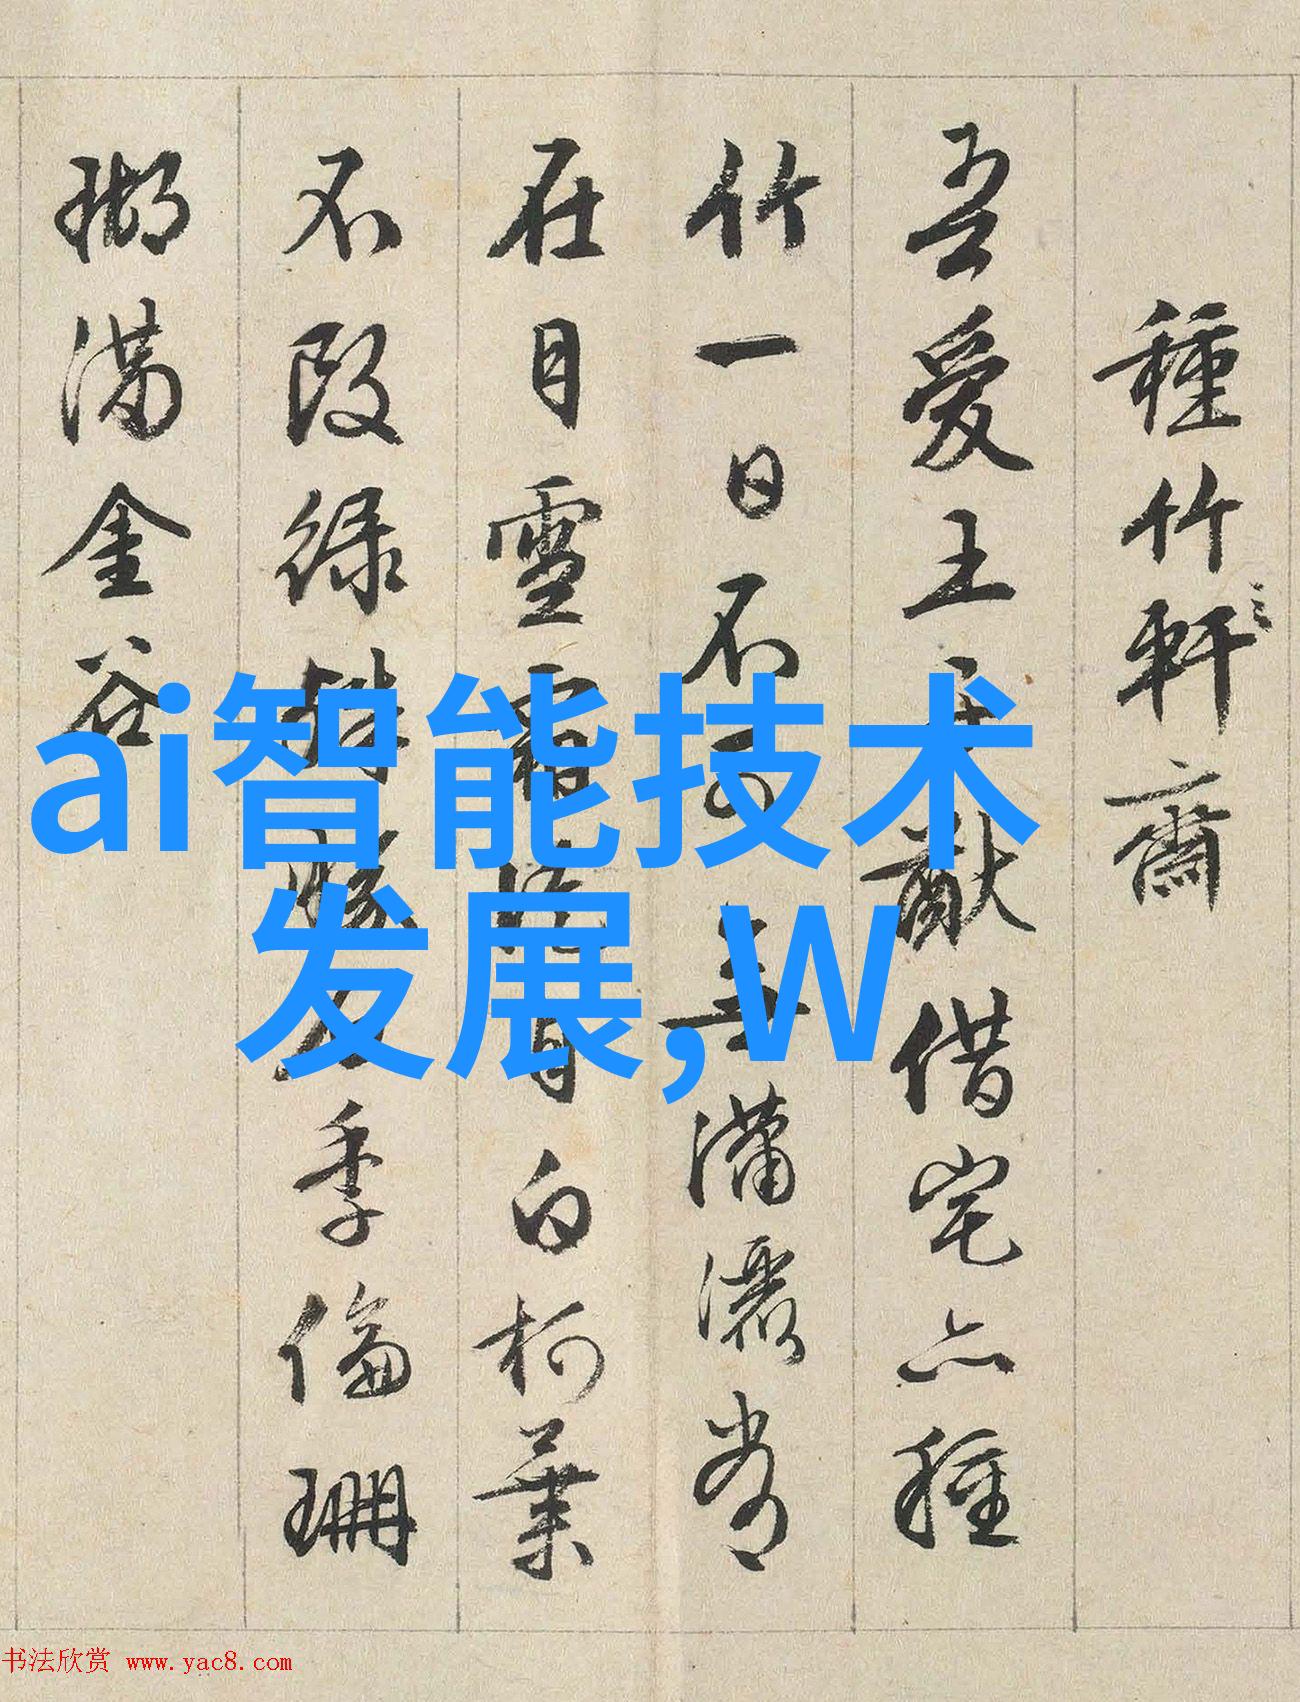 種竹軒齋
吾愛王子猷借宅亦種
竹一日不可無瀟灑常
在目雪霜徒自白柯葉
不改綠殊勝石季倫珊
瑚滿金谷
ai智能技术
发展,W
书法欣赏 www.yac8.com